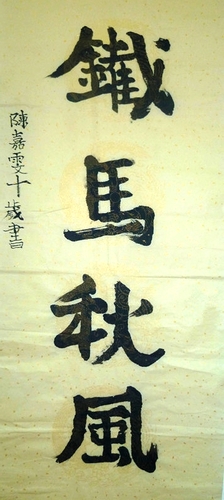 鐵馬秋風
陳嘉雯十歲書